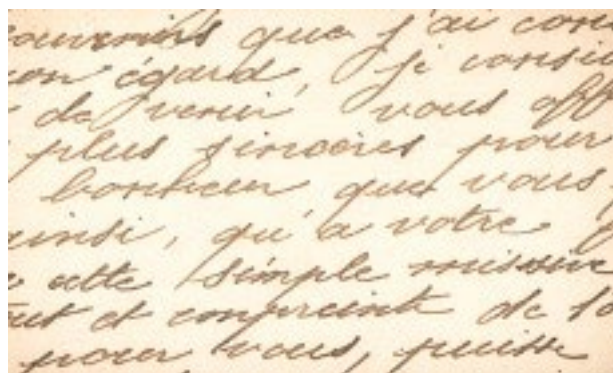 souvenirs que j'ai con
son égard, je consid
de venir vous off
plus sincères pour
bonheur que vous
ainsi, qu'à votre
cette simple missive
et empreinte de
pour vous, puisse